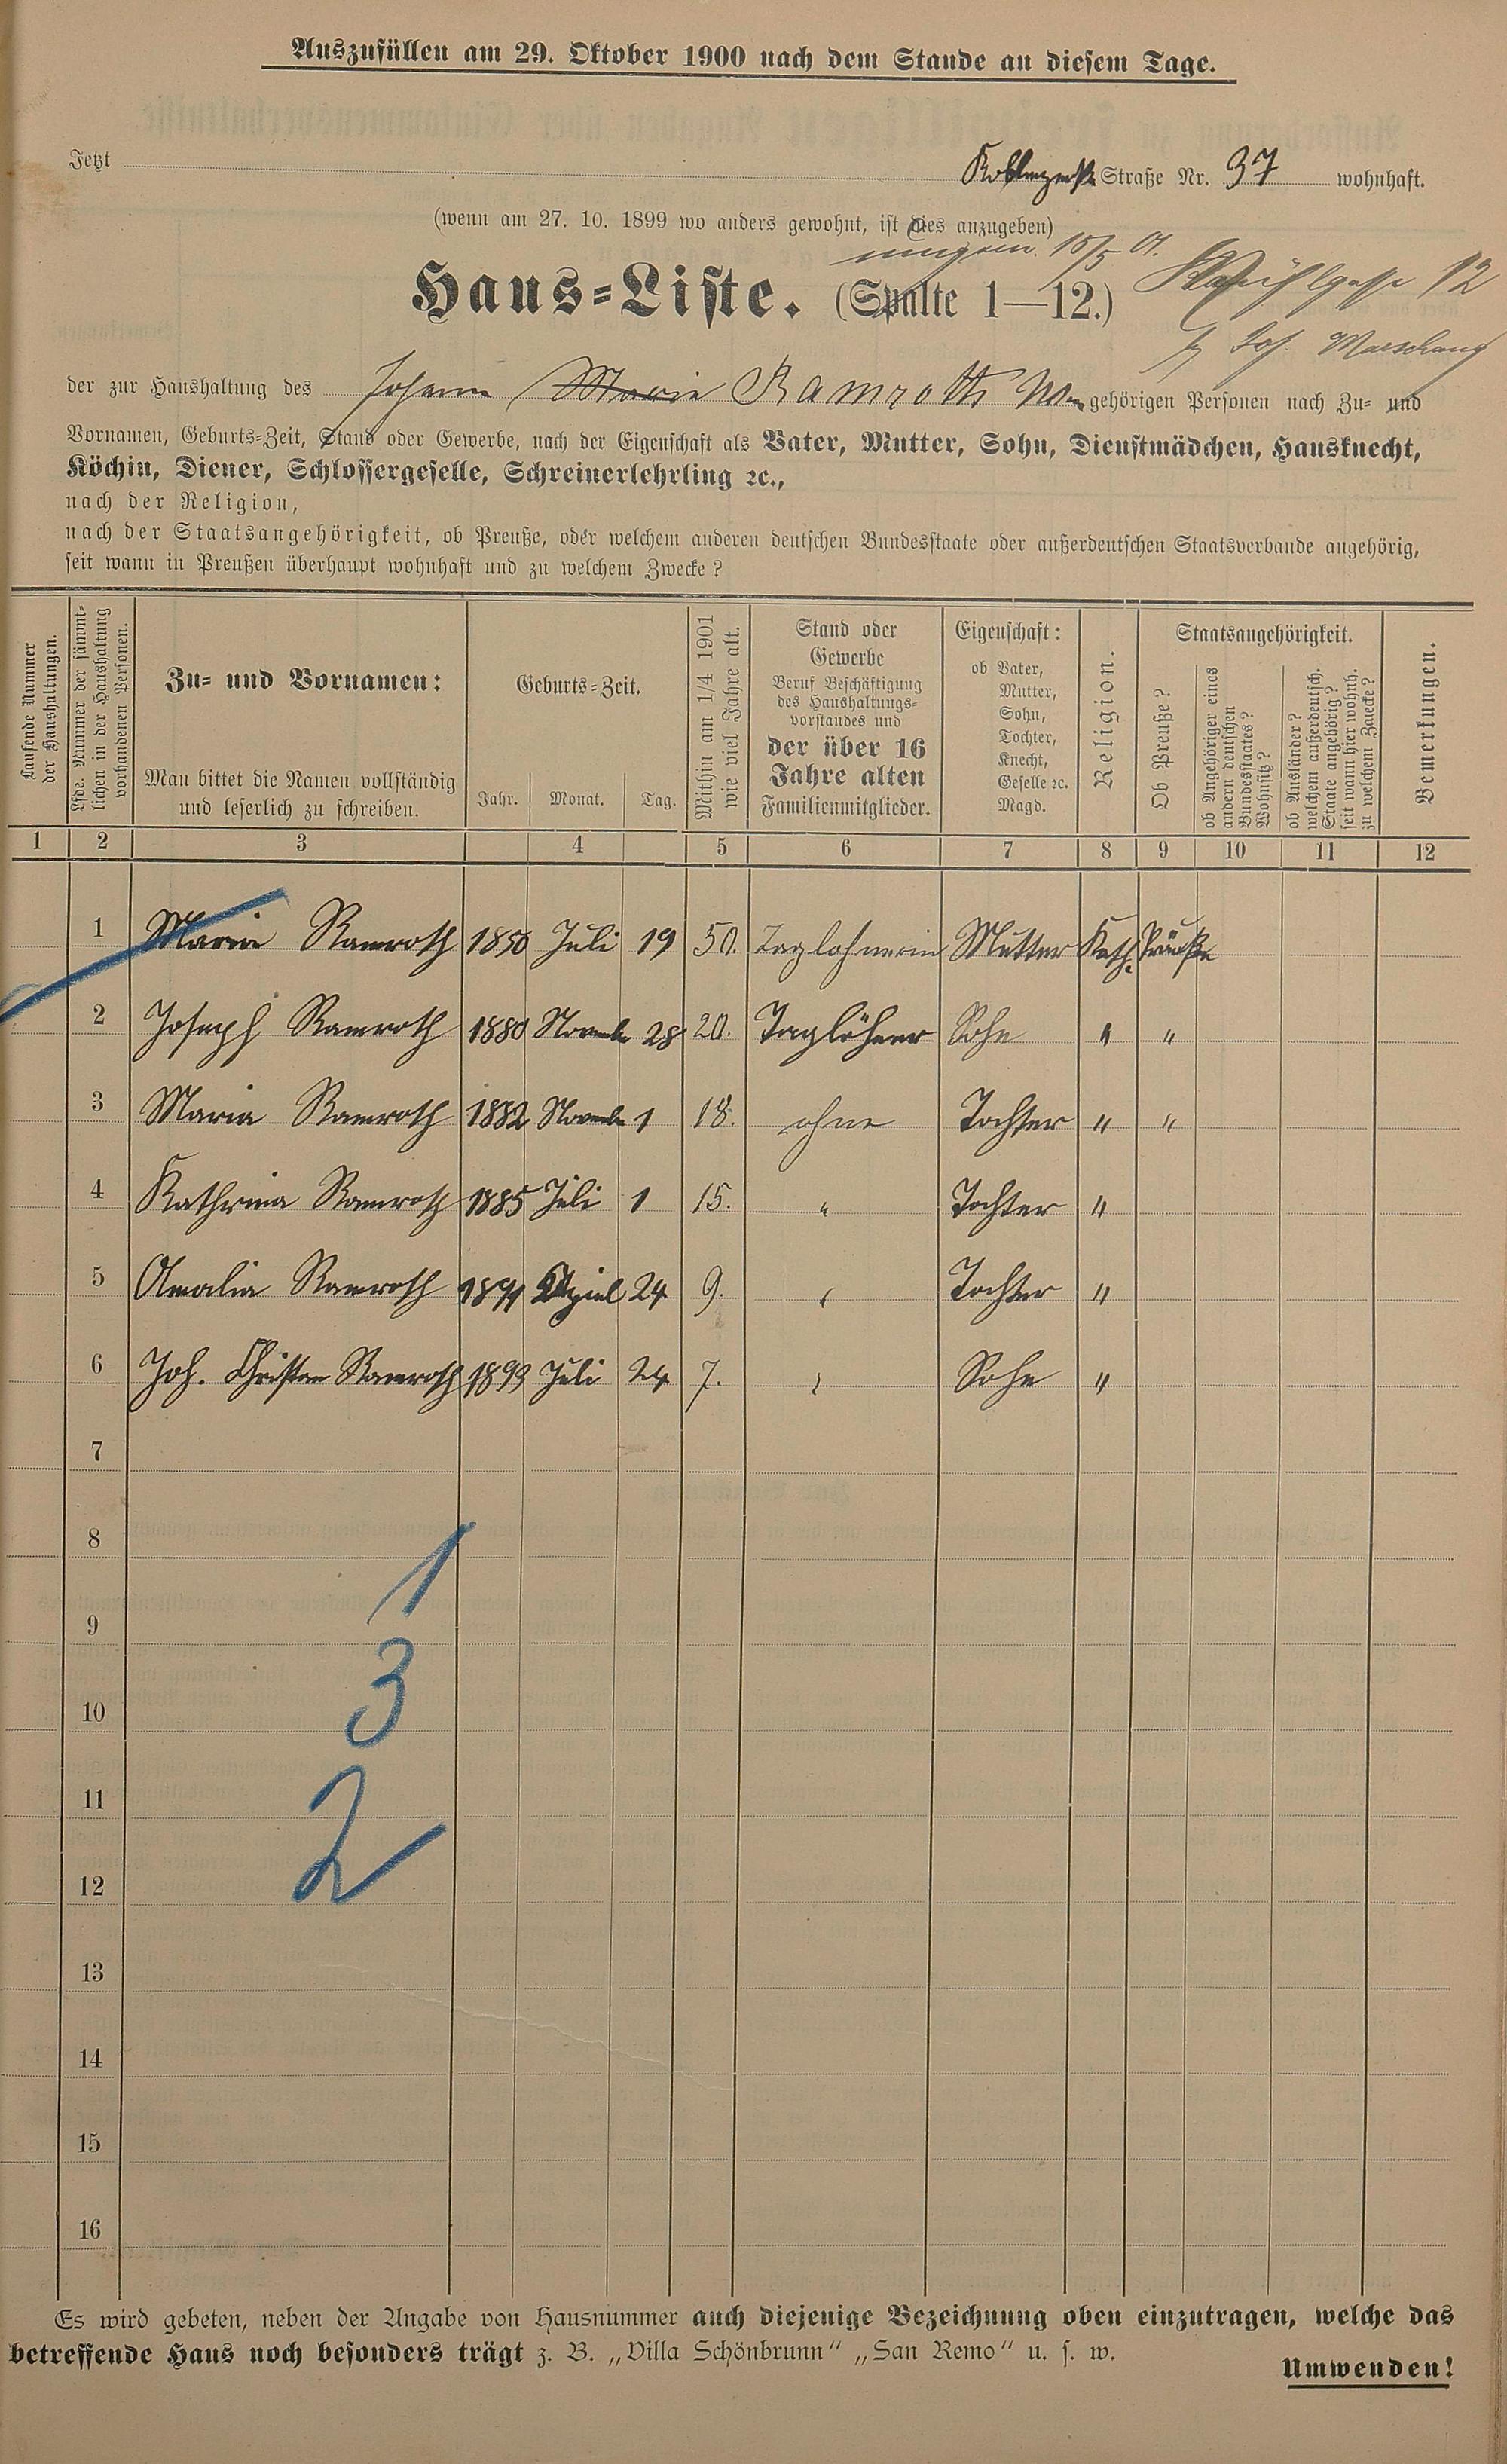 Auszufüllen am 29. Oktober 1900 nach dem Stande an diesem Tage.
Jetzt Straße Nr. 37 wohnhaft.
(wenn am 27. 10. 1899 wo anders gewohnt, ist dies anzugeben)
15/5 01.
Haus-Liste. (Spalte 1—12.) 12
der zur Haushaltung des Johann Maria Ramroth gehörigen Personen nach Zu- und
Vornamen, Geburts-Zeit, Stand oder Gewerbe, nach der Eigenschaft als Vater, Mutter, Sohn, Dienstmädchen, Hausknecht,
Köchin, Diener, Schlossergeselle, Schreinerlehrling ꝛc.,
nach der Religion,
nach der Staatsangehörigkeit, ob Preuße, oder welchem anderen deutschen Bundesstaate oder außerdeutschen Staatsverbande angehörig,
seit wann in Preußen überhaupt wohnhaft und zu welchem Zwecke?
Laufende Nummer der Haushaltungen.
Lfde. Nummer der sämmtlichen in der Haushaltung vorhandenen Personen.
Zu- und Vornamen:
Man bittet die Namen vollständig
und leserlich zu schreiben.
Geburts-Zeit.
Jahr. Monat. Tag.
Mithin am 1/4 1901 wie viel Jahre alt.
Stand oder
Gewerbe
Beruf Beschäftigung
des Haushaltungs-
vorstandes und
der über 16
Jahre alten
Familienmitglieder.
Eigenschaft:
ob Vater,
Mutter,
Sohn,
Tochter,
Knecht,
Geselle ꝛc.
Magd.
Religion.
Staatsangehörigkeit.
Ob Preuße?
ob Angehöriger eines andern deutschen Bundesstaates? Wohnsitz?
ob Ausländer? welchem außerdeutsch. Staate angehörig? seit wann hier wohnh. zu welchem Zwecke?
Bemerkungen.
1 2 3 4 5 6 7 8 9 10 11 12
1 Maria Ramroth 1850 Juli 19 50. Taglohnerin Mutter Kath. Präuße
2 Joseph Ramroth 1880 Novemb 28 20. Taglöhner Sohn " "
3 Maria Ramroth 1882 Novemb 1 18. ohne Tochter " "
4 Kathrina Ramroth 1885 Juli 1 15. " Tochter "
5 Amalia Ramroth 1891 Apriel 24 9. " Tochter "
6 Joh. Christan Ramroth 1893 Juli 24 7. " Sohn "
7
8
1
9
3
10
11
2
12
13
14
15
16
Es wird gebeten, neben der Angabe von Hausnummer auch diejenige Bezeichnung oben einzutragen, welche das
betreffende Haus noch besonders trägt z. B. „Villa Schönbrunn“ „San Remo“ u. s. w.
Umwenden!